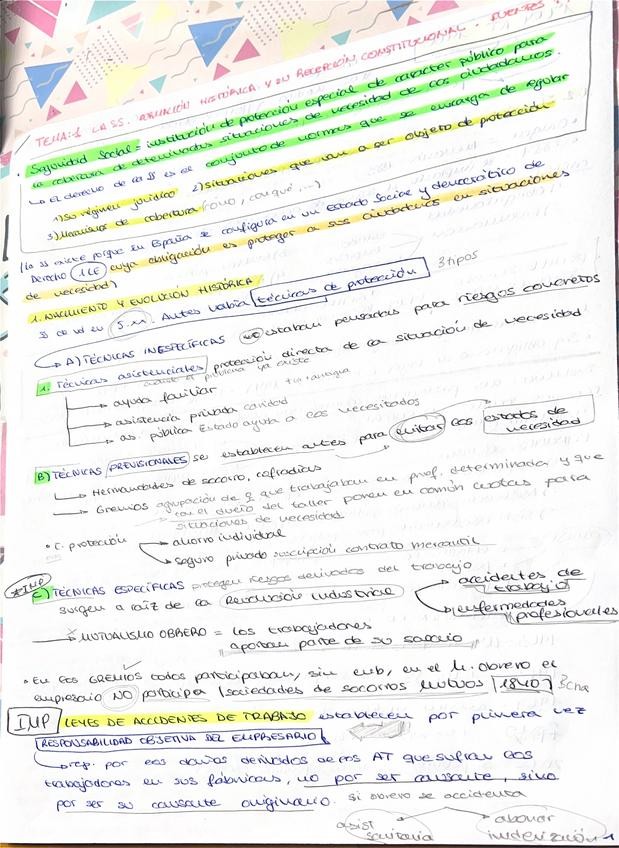 TEMA: 1 LA SS. EVOLUCIÓN HISTÓRICA Y SU RECEPCIÓN CONSTITUCIONAL. FUENTES
· Seguridad Social = institución de protección especial de carácter público para
la cobertura de determinadas situaciones de necesidad de los ciudadanos.
↳ El derecho de la SS es el conjunto de normas que se encarga de regular
1) Su régimen jurídico 2) situaciones que van a ser objeto de protección
3) Mecanismos de cobertura (cómo, con qué, ...)
(La SS existe porque En España se configura en un Estado Social y democrático de
Derecho (1 CE) cuya obligación es proteger a sus ciudadanos en situaciones
de necesidad)
1. NACIMIENTO Y EVOLUCIÓN HISTÓRICA
Antes había técnicas de protección 3 tipos
A) TÉCNICAS INESPECÍFICAS no estaban pensadas para riesgos concretos
1. Técnicas asistenciales protección directa de la situación de necesidad
cuando el problema ya existe
→ ayuda familiar + antigua
→ asistencia privada caridad
→ as. pública Estado ayuda a los necesitados
B) TÉCNICAS PREVISIONALES se establecen antes para evitar los estados de
necesidad
→ Hermandades de socorro, cofradías
→ Gremios agrupación de que trabajaban en prof. determinada y que
con el dueño del taller ponen en común cuotas para
situaciones de necesidad
· T. protección → ahorro individual
→ seguro privado suscripción contrato mercantil
*IMP
C) TÉCNICAS ESPECÍFICAS protegen riesgos derivados del trabajo
surgen a raíz de la Revolución Industrial → accidentes de
trabajo
→ enfermedades
profesionales
→ MUTUALISMO OBRERO = los trabajadores
aportan parte de su salario
· En los GREMIOS todos participaban, sin emb, en el M. obrero el
empresario NO participa (sociedades de socorros mutuos 1840
IMP LEYES DE ACCIDENTES DE TRABAJO establecen por primera vez
RESPONSABILIDAD OBJETIVA DEL EMPRESARIO
↳ resp. por los daños derivados de los AT que sufran los
trabajadores en sus fábricas, no por ser causante, sino
por ser su causante originario. Si obrero se accidenta
asist
sanitaria
abonar
indemnización